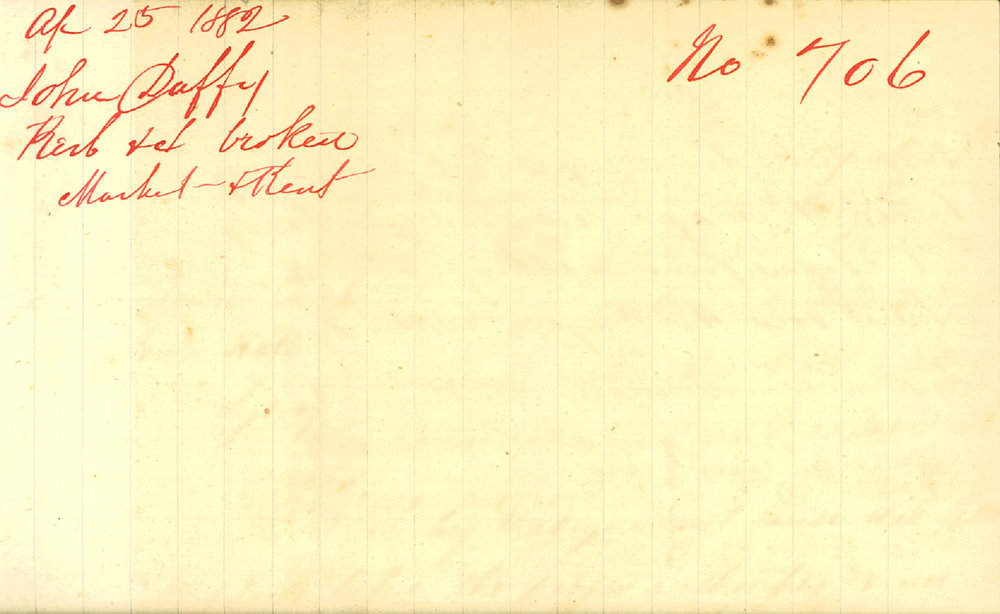 Ap 25 1882
No 706
John Duffy
Kerb &c broken
Market & Kent